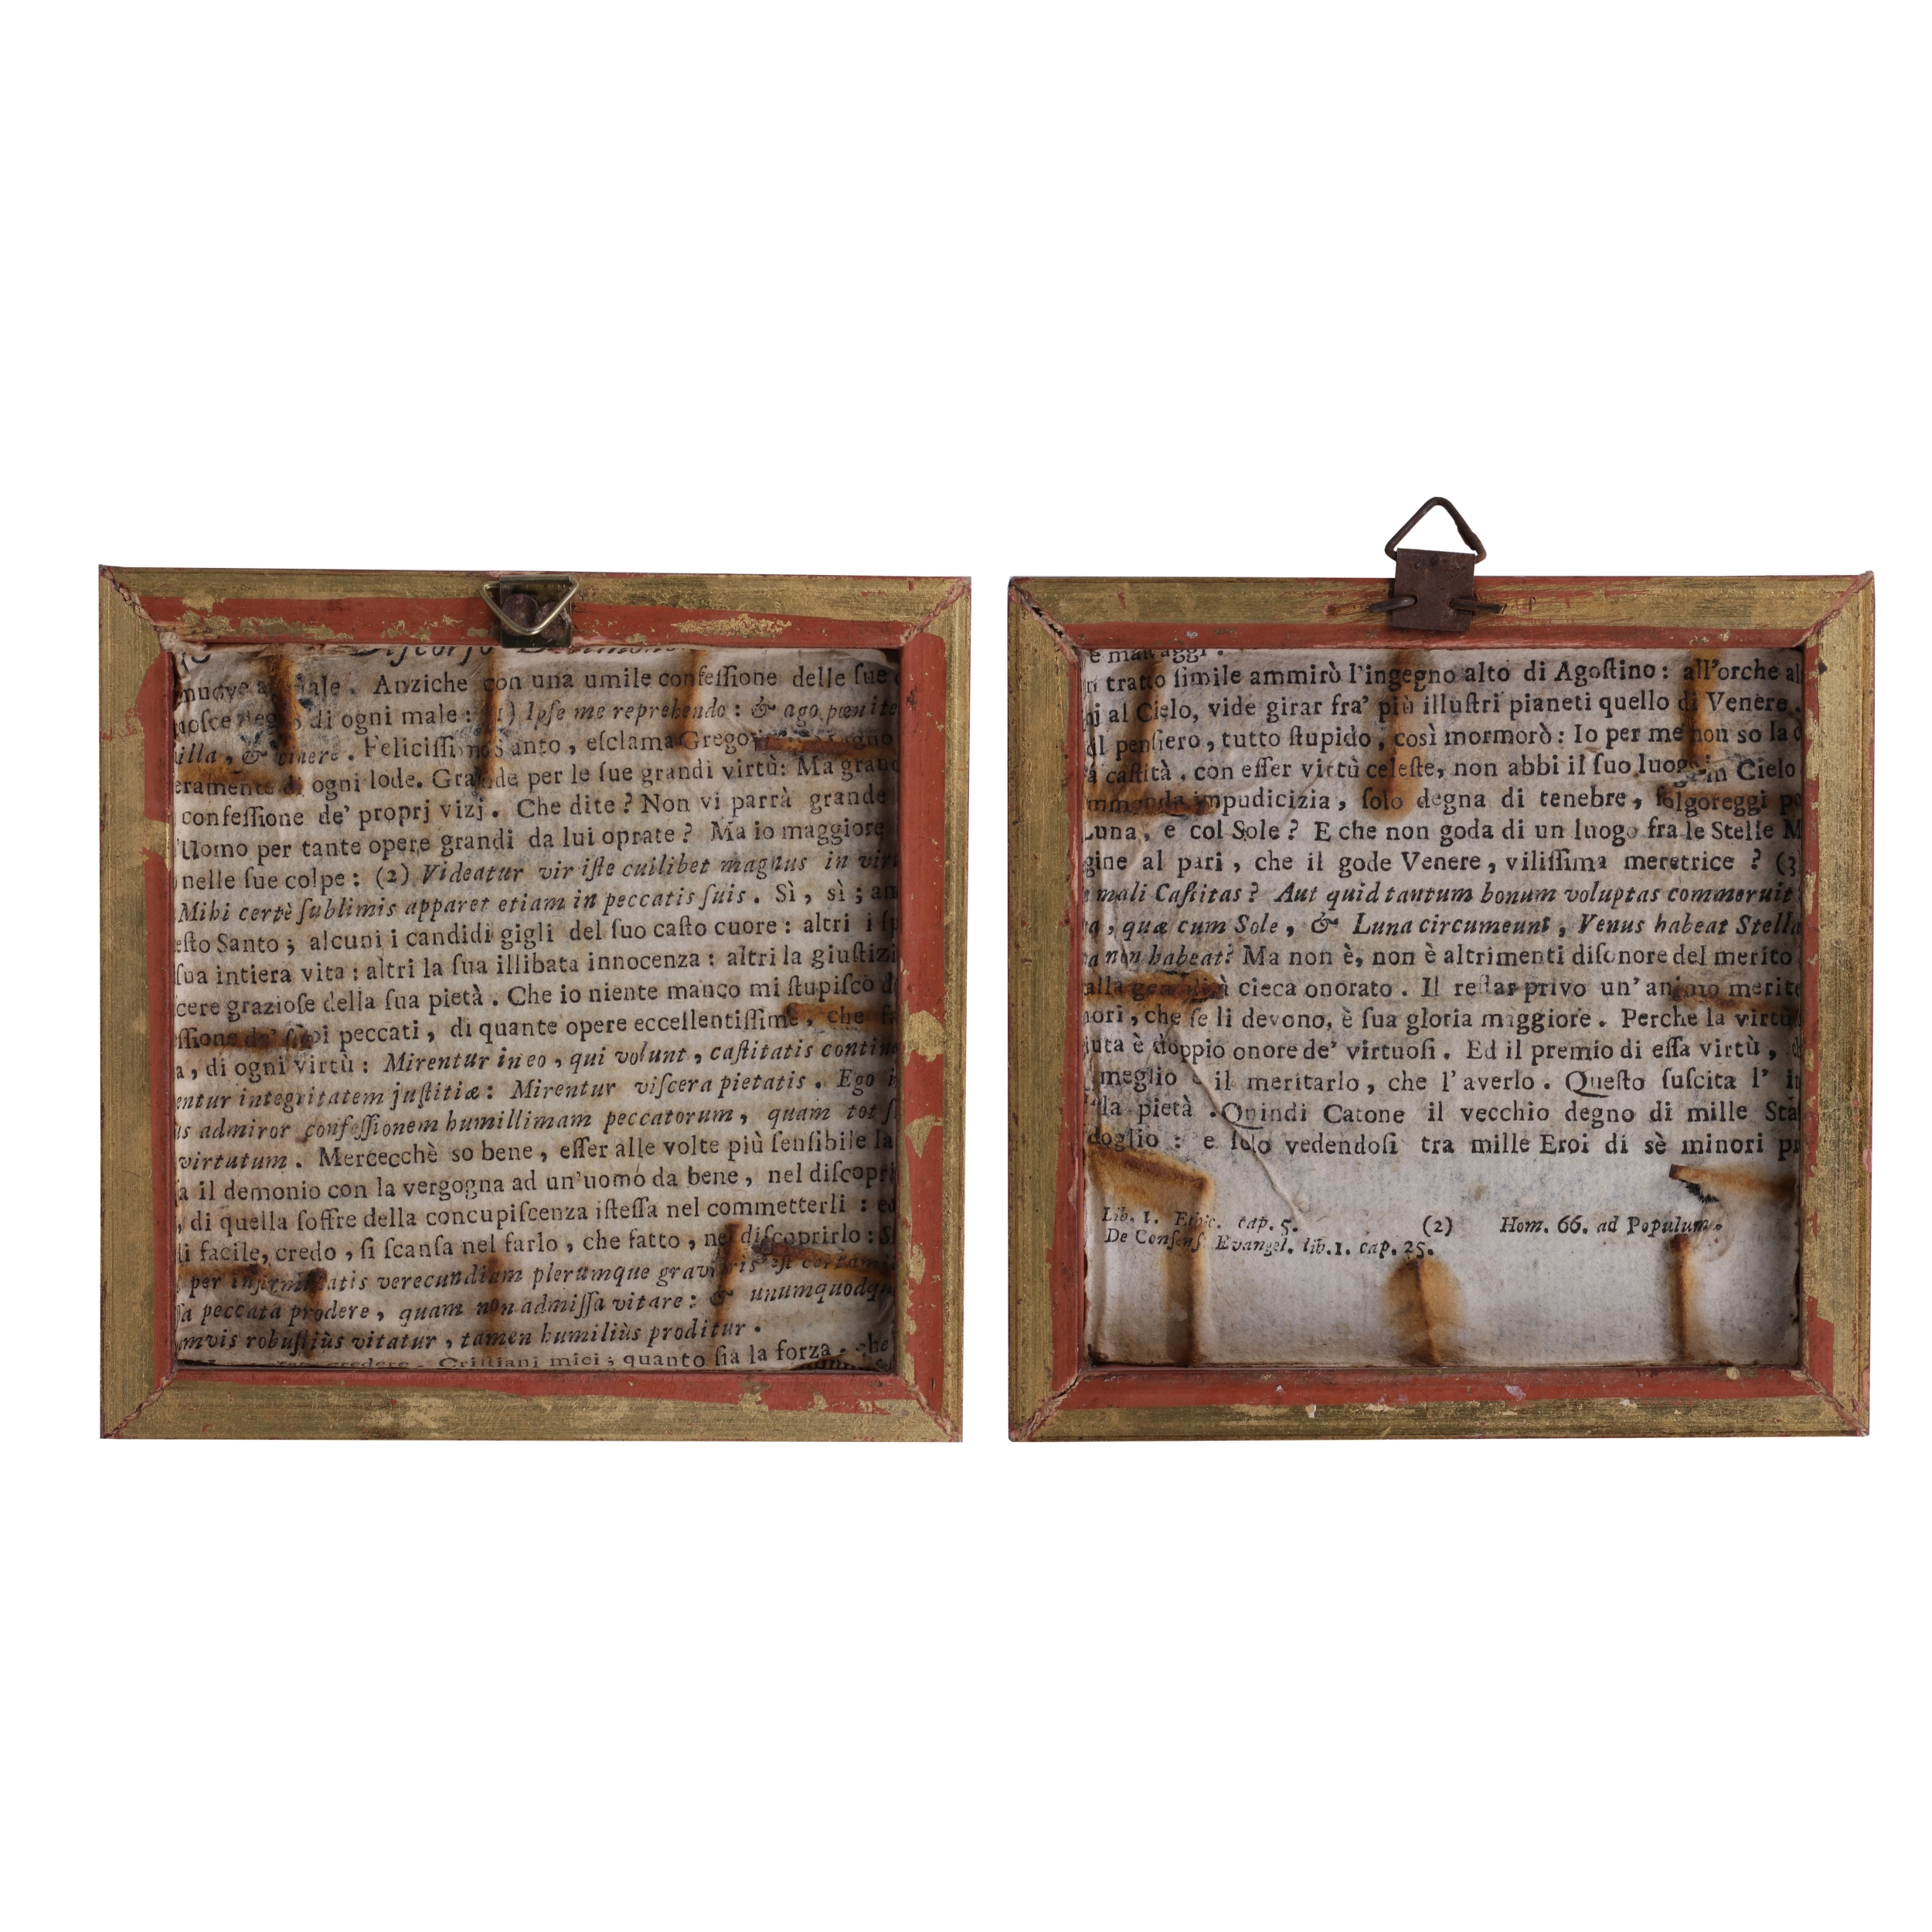 Discorso
nuove a male. Anziche con una umile confeſſione delle ſue
noſce di ogni male: (1) Ipſe me reprehendo: & ago pœnite
illa, & cinere. Feliciſſimo Santo, eſclama Grego
eramente di ogni lode. Grande per le ſue grandi virtù: Ma grand
confeſſione de' proprj vizj. Che dite? Non vi parrà grande
Uomo per tante opere grandi da lui oprate? Ma io maggiore
nelle ſue colpe: (2) Videatur vir iſte cuilibet magnus in vir
Mihi certè ſublimis apparet etiam in peccatis ſuis. Sì, sì; am
eſto Santo; alcuni i candidi gigli del ſuo caſto cuore: altri i ſp
ſua intiera vita: altri la ſua illibata innocenza: altri la giuſtizi
cere grazioſe della ſua pietà. Che io niente manco mi ſtupiſco d
ſſione de' ſuoi peccati, di quante opere eccellentiſſime, che f
a, di ogni virtù: Mirentur in eo, qui volunt, caſtitatis contin
entur integritatem juſtitiæ: Mirentur viſcera pietatis. Ego i
ùs admiror confeſſionem humillimam peccatorum, quam tot ſ
virtutum. Mercecchè so bene, eſſer alle volte più ſenſibile la
ſa il demonio con la vergogna ad un'uomo da bene, nel diſcopri
, di quella ſoffre della concupiſcenza iſteſſa nel commetterli: ed
li facile, credo, ſi ſcanſa nel farlo, che fatto, nel diſcoprirlo: S
per infirmitatis verecundiam plerumque gravioris eſt certami
ſſa peccata prodere, quam non admiſſa vitare: & unumquodqu
amvis robuſtiùs vitatur, tamen humiliùs proditur.
credere, Criſtiani miei; quanto ſia la forza, che
e malvaggi.
n tratto ſimile ammirò l'ingegno alto di Agoſtino: all'orche al
j al Cielo, vide girar fra' più illuſtri pianeti quello di Venere.
l penſiero, tutto ſtupido, così mormorò: Io per me non so la c
a caſtità, con eſſer virtù celeſte, non abbi il ſuo luogo in Cielo
mmonda impudicizia, ſolo degna di tenebre, folgoreggi po
Luna, e col Sole? E che non goda di un luogo fra le Stelle M
gine al pari, che il gode Venere, viliſſima meretrice? (3)
mali Caſtitas? Aut quid tantum bonum voluptas commeruit
a, quæ cum Sole, & Luna circumeunt, Venus habeat Stella
a non habeat? Ma non è, non è altrimenti diſonore del merito
alla gentilità cieca onorato. Il reſtar privo un' animo merite
nori, che ſe li devono, è ſua gloria maggiore. Perche la virtù
iuta è doppio onore de' virtuoſi. Ed il premio di eſſa virtù,
meglio è il meritarlo, che l'averlo. Queſto ſuſcita l' in
lla pietà. Quindi Catone il vecchio degno di mille Sta
doglio: e ſolo vedendoſi tra mille Eroi di sè minori pr
Lib. 1. Ethic. cap. 5. (2) Hom. 66. ad Populum.
De Conſenſ Evangel. lib. 1. cap. 25.